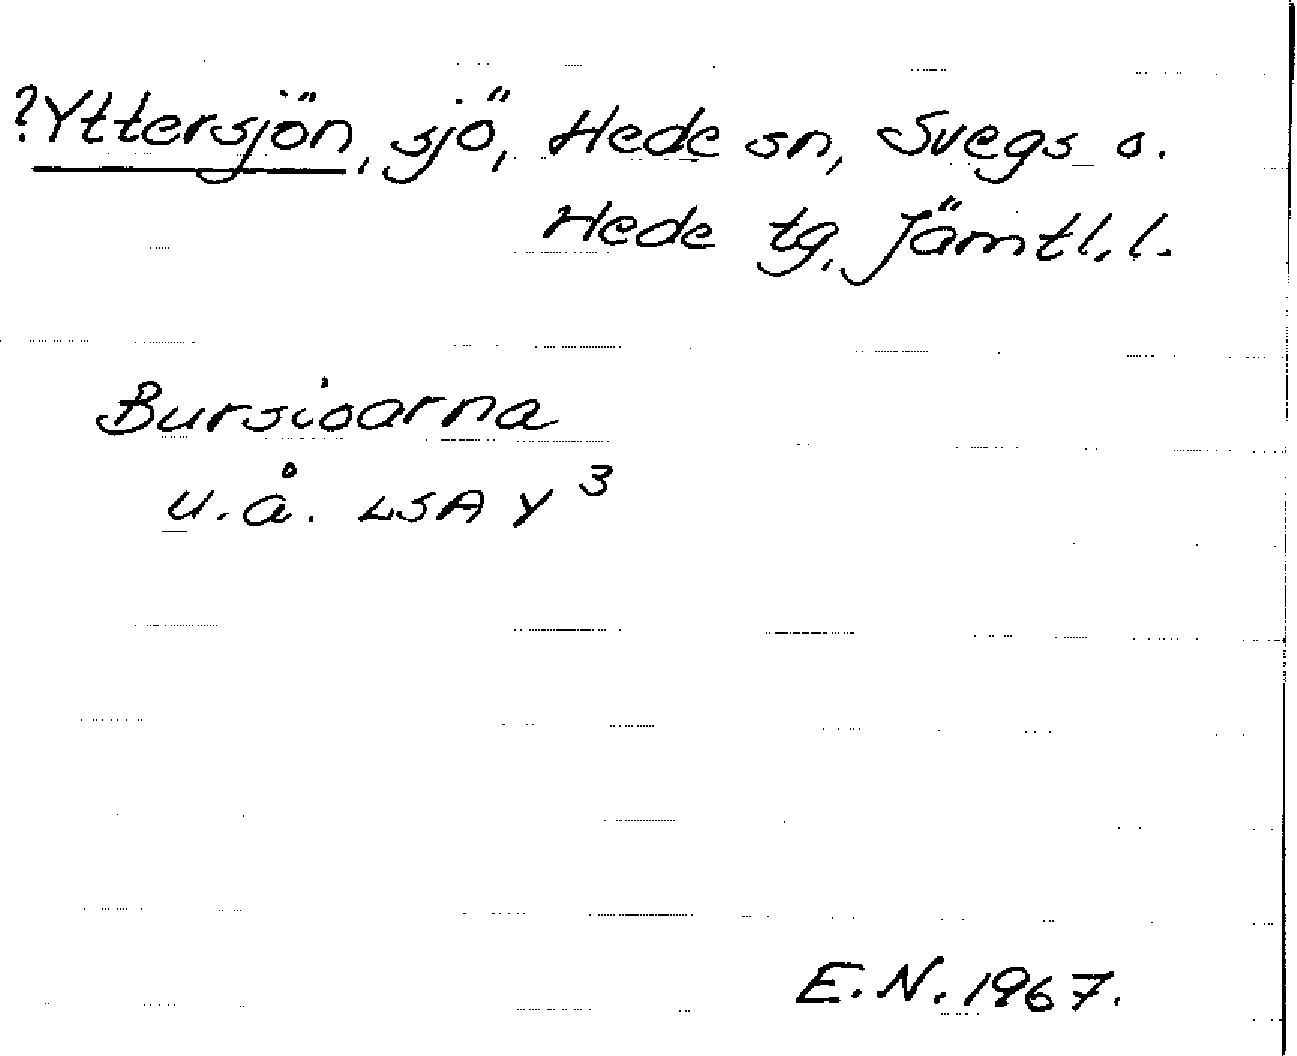 ?Yttersjön, sjö, Hede sn, Svegs o.
Hede tg, Jämtl. l.
Bursioarna
u.å. LSA Y 3
E.N. 1967.